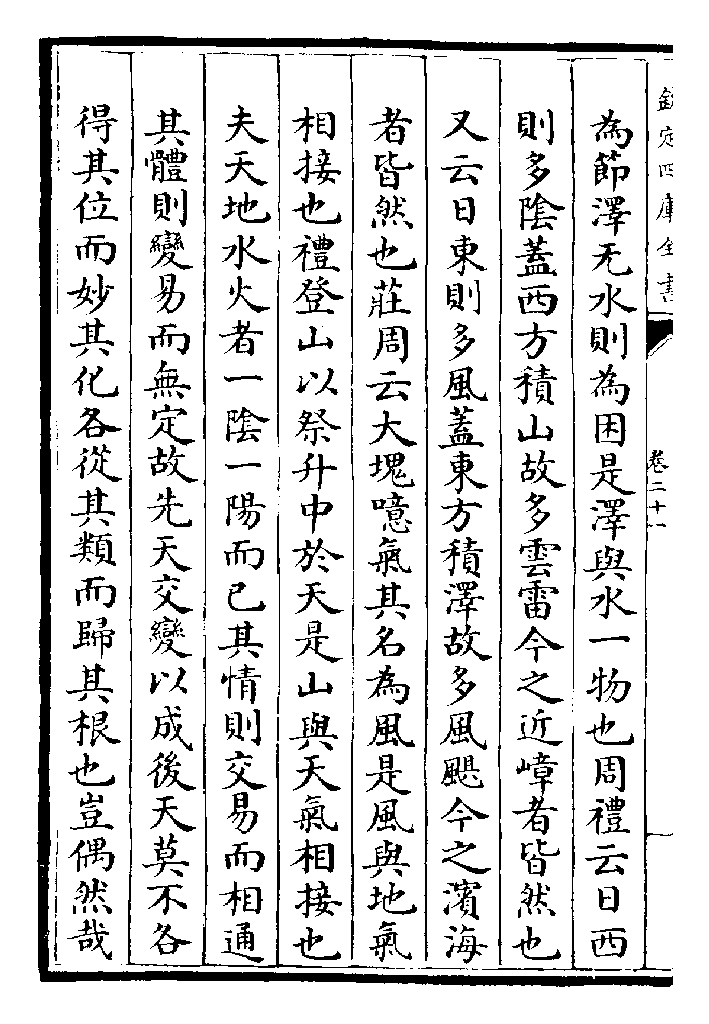 欽定四庫全書
卷二十一
為節澤无水則為困是澤與水一物也周禮云日西
則多陰蓋西方積山故多雲雷今之近嶂者皆然也
又云日東則多風蓋東方積澤故多風颶今之濱海
者皆然也莊周云大塊噫氣其名為風是風與地氣
相接也禮登山以祭升中於天是山與天氣相接也
夫天地水火者一陰一陽而已其情則交易而相通
其體則變易而無定故先天交變以成後天莫不各
得其位而妙其化各從其類而歸其根也豈偶然哉